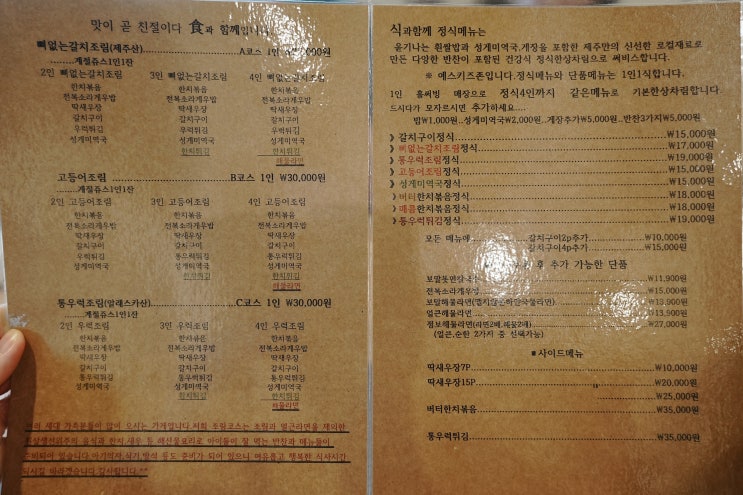 맛이 곧 친절이다 食과 함께입니다
뼈없는갈치조림(제주산) A코스 1인
계절쥬스1인1잔
2인 뼈없는갈치조림 3인 뼈없는갈치조림 4인 뼈없는갈치조림
한치볶음 한치볶음 한치볶음
전복소라게우밥 전복소라게우밥 전복소라게우밥
딱새우장 딱새우장 딱새우장
갈치구이 갈치구이 갈치구이
우럭튀김 우럭튀김 우럭튀김
성게미역국 성게미역국 성게미역국
한치튀김 한치튀김
해물라면
고등어조림 B코스 1인 ₩30,000원
계절쥬스1인1잔
2인 고등어조림 3인 고등어조림 4인 고등어조림
한치볶음 한치볶음 한치볶음
전복소라게우밥 전복소라게우밥 전복소라게우밥
딱새우장 딱새우장 딱새우장
갈치구이 갈치구이 갈치구이
우럭튀김 통우럭튀김 통우럭튀김
성게미역국 성게미역국 성게미역국
한치튀김 한치튀김
해물라면
통우럭조림(알래스카산) C코스 1인 ₩30,000원
계절쥬스1인1잔
2인 우럭조림 3인 우럭조림 4인 우럭조림
한치볶음 한치볶음 한치볶음
전복소라게우밥 전복소라게우밥 전복소라게우밥
딱새우장 딱새우장 딱새우장
갈치구이 갈치구이 갈치구이
통우럭튀김 통우럭튀김 통우럭튀김
성게미역국 성게미역국 성게미역국
한치튀김 한치튀김
해물라면
세대 가족분들이 많이 오시는 가게입니다 저희 조림코스는 조림과 얼큰라면을 제외한
음식과 한치,새우 등 해산물요리로 아이들이 잘 먹는 반찬과 메뉴들이
준비되어 있습니다.아기의자,식기 등도 준비가 되어 있으니 여유롭고 행복한 식사시간
되시길 바라겠습니다 감사합니다.^^
식과함께 정식메뉴는
윤기나는 흰쌀밥과 성게미역국,게장을 포함한 제주만의 신선한 로컬재료로
만든 다양한 반찬이 포함된 건강식 정식한상차림으로 써비스합니다.
※ 예스키즈존입니다.정식메뉴와 단품메뉴는 1인1식합니다.
1인 홀써빙 매장으로 정식4인까지 같은메뉴로 기본한상차림합니다
드시다가 모자르시면 추가하세요....
밥₩1,000원,성게미역국₩2,000원,게장추가₩5,000원,반찬3가지₩5,000원
》갈치구이정식 ₩15,000원
》뼈없는갈치조림정식 ₩17,000원
》통우럭조림정식 ₩19,000원
》고등어조림정식 ₩15,000원
》성게미역국정식 ₩15,000원
》버터한치볶음정식 ₩18,000원
》매콤한치볶음정식 ₩18,000원
》통우럭튀김정식 ₩19,000원
모든 메뉴에 갈치구이2p추가 ₩10,000원
갈치구이4p추가 ₩15,000원
후 추가 가능한 단품
₩11,900원
전복소라게우밥 ₩15,000원
보말해물라면 ₩13,900원
얼큰해물라면 ₩13,900원
점보해물라면(라면2배,해물2배) ₩27,000원
(얼큰,순한 2가지 중 선택가능)
■사이드메뉴
딱새우장7P ₩10,000원
딱새우장15P ₩20,000원
₩25,000원
버터한치볶음 ₩35,000원
통우럭튀김 ₩35,000원